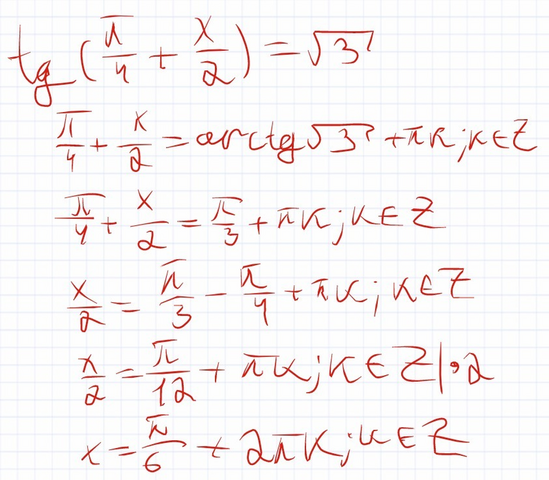 tg(π/4 + x/2) = √3
π/4 + x/2 = arctg√3 + πk; k ∈ Z
π/4 + x/2 = π/3 + πk; k ∈ Z
x/2 = π/3 − π/4 + πk; k ∈ Z
x/2 = π/12 + πk; k ∈ Z | · 2
x = π/6 + 2πk; k ∈ Z